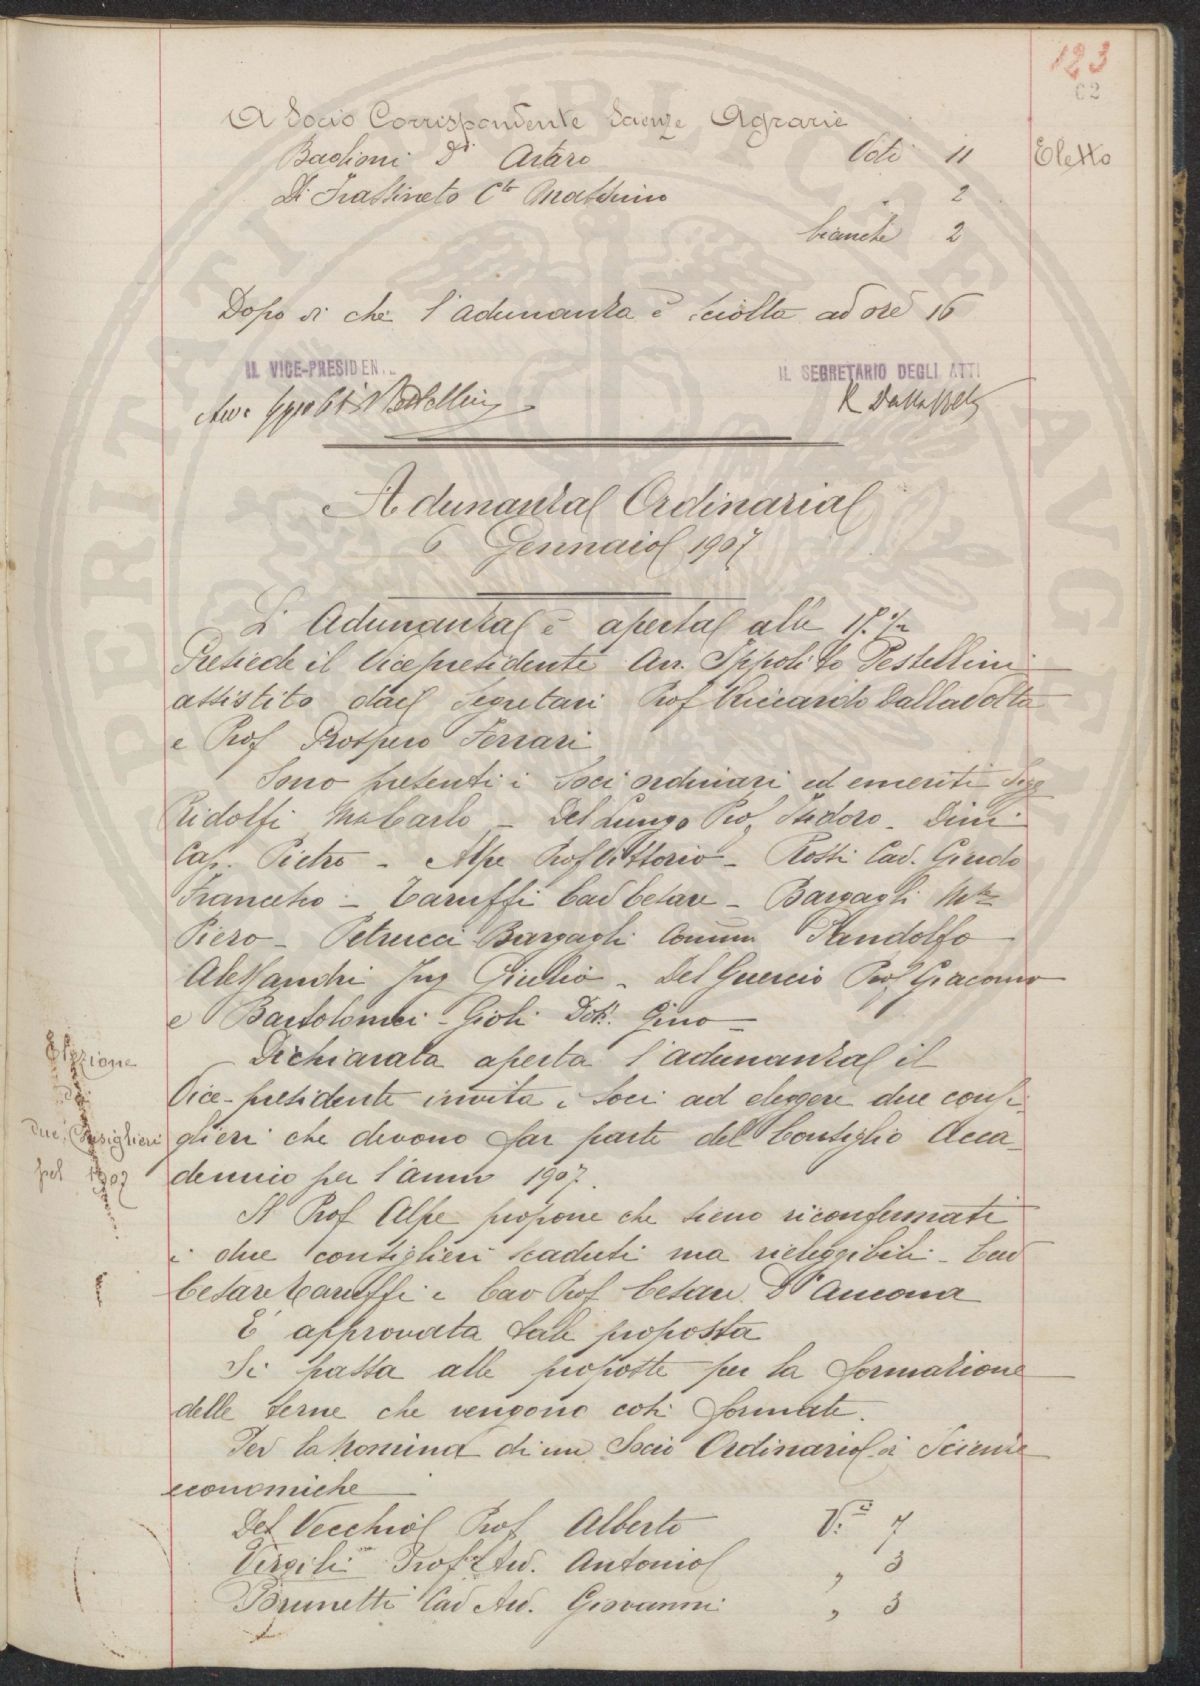 123
62
A Socio Corrispondente Scienze Agrarie
Baglioni D.r Arturo Voti 11 Eletto
Di Frassineto C.te Massimo " 2
bianche 2
Dopo di che l'adunanza è sciolta ad ore 16
IL VICE-PRESIDENTE
IL SEGRETARIO DEGLI ATTI
Avv. Ippolito Pestellini
R Dalla Volta
Adunanza Ordinaria
6 Gennaio 1907
L'Adunanza è aperta alle 15 1/2
Presiede il Vicepresidente Avv. Ippolito Pestellini
assistito dai Segretari Prof Riccardo Dallavolta
e Prof Prospero Ferrari
Sono presenti i Soci ordinari ed emeriti Sigg
Ridolfi M.se Carlo - Del Lungo Prof Isidoro - Dini
Cap. Pietro - Alpe Prof Vittorio - Rossi Cav. Guido
Francesco - Taruffi Cav Cesare - Bargagli M.se
Piero - Petrucci Bargagli Comm Pandolfo
Alessandri Ing Giulio - Del Guercio Prof Giacomo
e Bartolomei-Gioli Dott. Gino -
Dichiarata aperta l'adunanza il
Vice-presidente invita i Soci ad eleggere due consi-
glieri che devono far parte del Consiglio Acca-
demico per l'anno 1907.
Elezione
di
due Consiglieri
pel 1907
Il Prof Alpe propone che sieno riconfermati
i due consiglieri scaduti ma rieleggibili - Cav
Cesare Taruffi e Cav Prof Cesare D'Ancona
E' approvata tale proposta
Si passa alle proposte per la formazione
delle terne che vengono così formate.
Per la nomina di un Socio Ordinario di Scienze
economiche
Del Vecchio Prof Alberto V.i 7
Virgili Prof Avv. Antonio " 3
Brunetti Cav Avv. Giovanni " 3